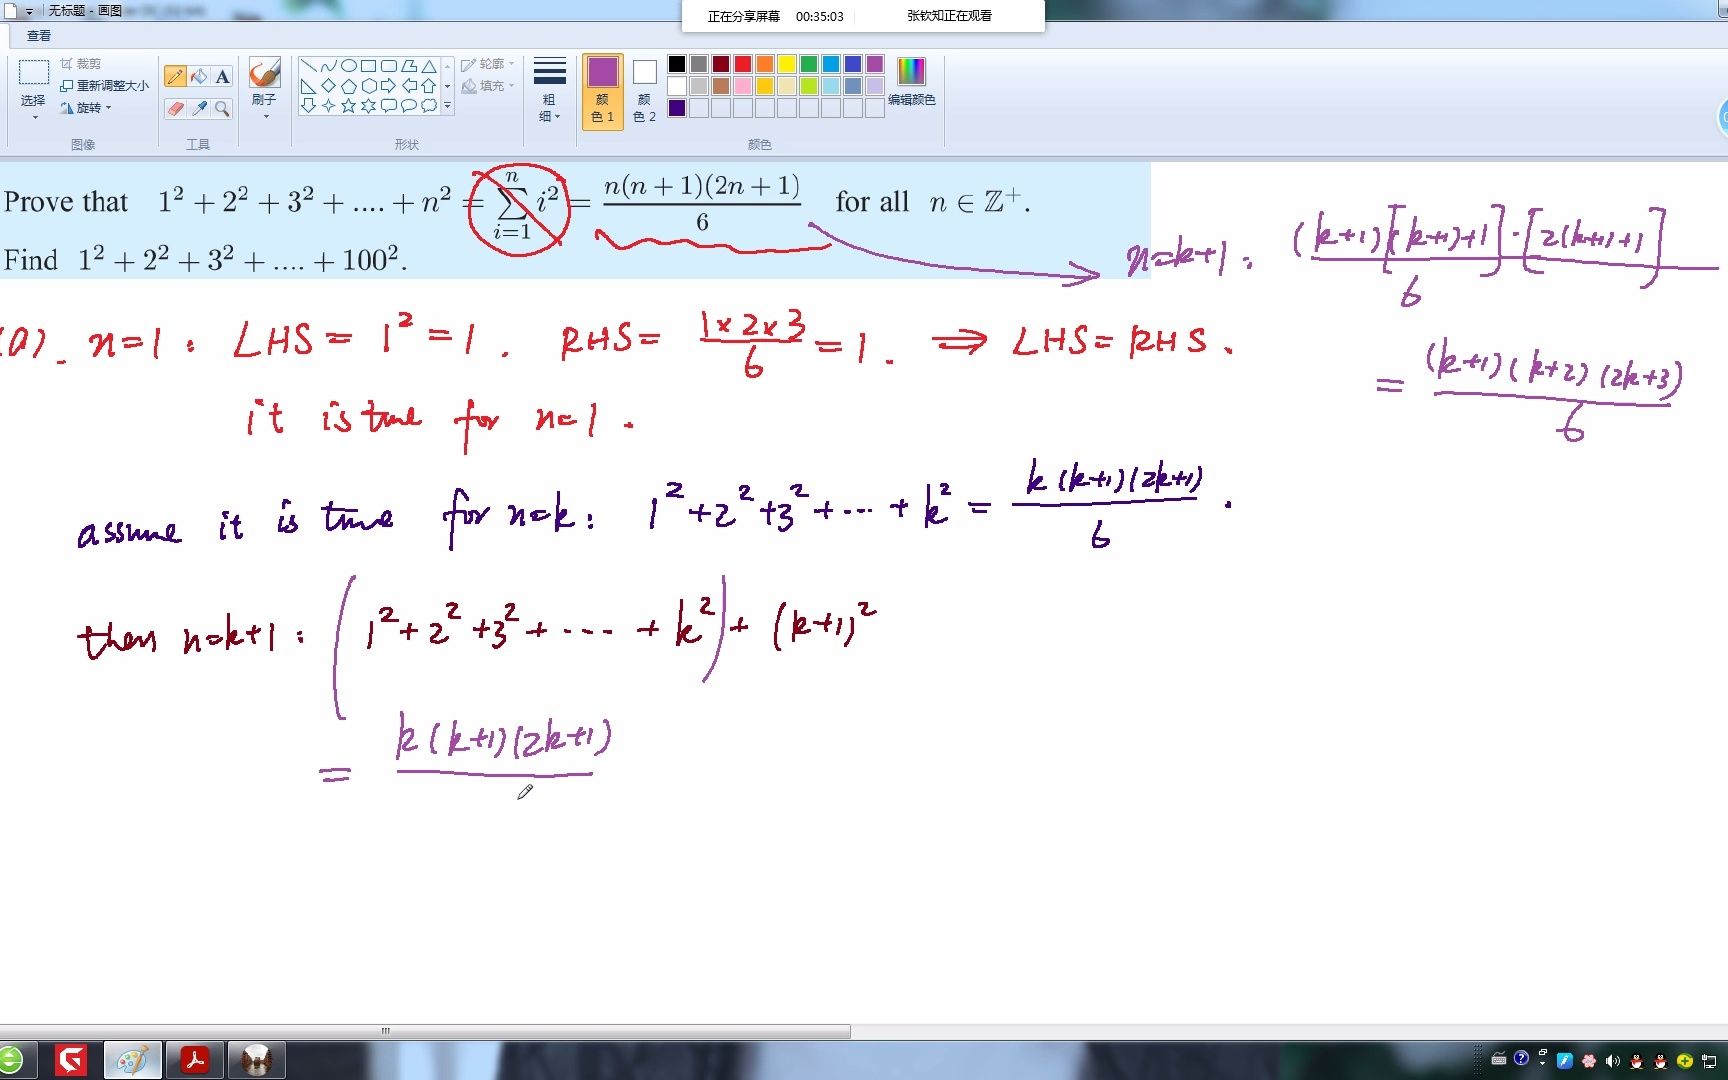 无标题 - 画图
正在分享屏幕 00:35:03 张钦知正在观看
查看
选择
裁剪
重新调整大小
旋转
图像
A
工具
刷子
轮廓
填充
形状
粗细
颜色 1
颜色 2
编辑颜色
颜色
Prove that 1² + 2² + 3² + .... + n² = ∑_{i=1}^{n} i² = n(n + 1)(2n + 1)/6 for all n ∈ ℤ⁺.
Find 1² + 2² + 3² + .... + 100².
n=k+1: (k+1)[(k+1)+1]·[2(k+1)+1]/6
= (k+1)(k+2)(2k+3)/6
(a). n=1: LHS = 1² = 1. RHS = 1×2×3/6 = 1. ⇒ LHS = RHS.
it is true for n=1.
assume it is true for n=k: 1²+2²+3²+...+k² = k(k+1)(2k+1)/6.
then n=k+1: (1²+2²+3²+....+k²)+(k+1)²
= k(k+1)(2k+1)